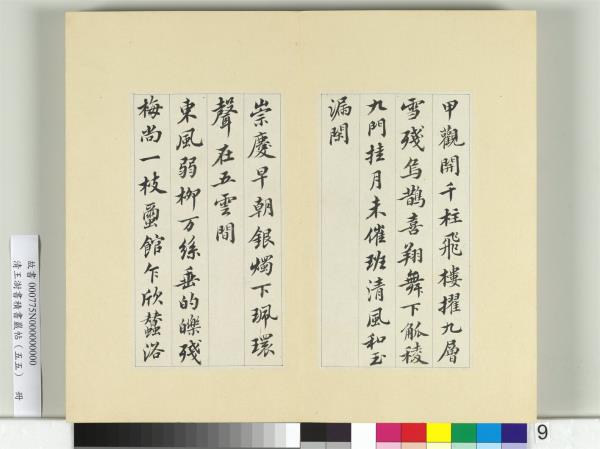 甲觀開千柱飛樓擢九層
雪殘烏鵲喜翔舞下觚稜
九門挂月未催班清風和玉
漏閑
崇慶早朝銀燭下珮環
聲在五雲間
東風弱柳万絲垂的皪殘
梅尚一枝蠒館乍欣蠶浴
故書 000775N000000000
清王澍書積書巖帖（五五） 冊
9